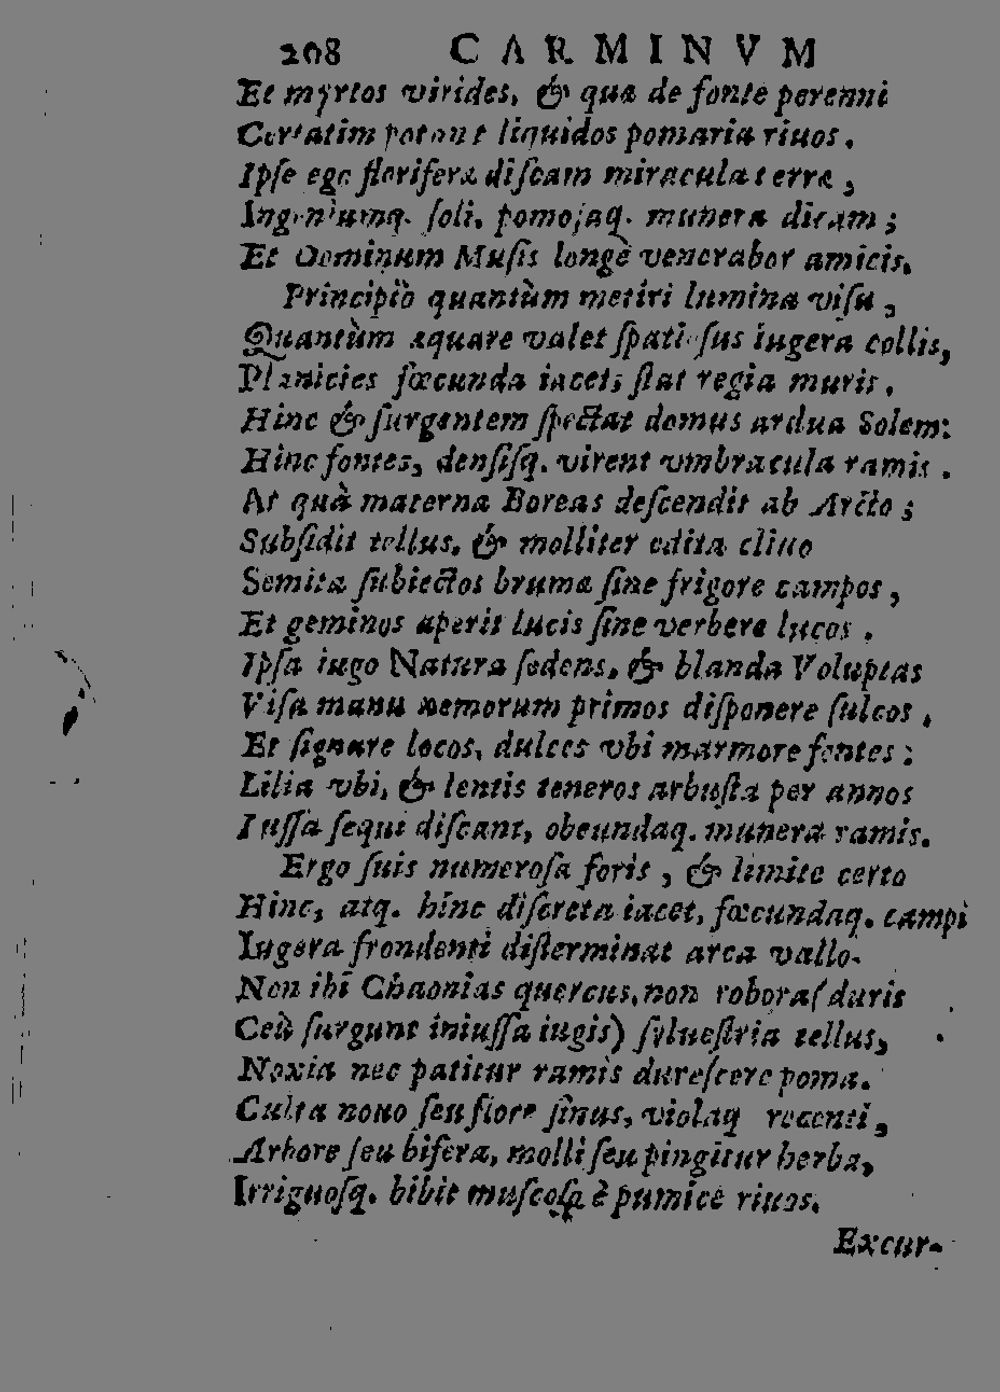 208 CARMINVM
Et myrtos virides, & quæ de fonte perenni
Certatim potant liquidos pomaria riuos.
Ipſe ego floriferæ diſcam miracula terræ,
Ingeniumq. ſoli, pomoſaq. munera dicam;
Et Dominum Muſis longè venerabor amicis.
Principiò quantùm metiri lumina viſu,
Quantùm æquare valet ſpatioſus iugera collis,
Planicies fœcunda iacet; ſtat regia muris,
Hinc & ſurgentem ſpectat domus ardua Solem:
Hinc fontes, denſiſq. virent vmbracula ramis.
At quà materna Boreas deſcendit ab Arcto;
Subſidit tellus, & molliter edita cliuo
Semita ſubiectos brumæ ſine frigore campos,
Et geminos aperit lucis ſine verbere lucos.
Ipſa iugo Natura ſedens, & blanda Voluptas
Viſa manu nemorum primos diſponere ſulcos,
Et ſignare locos, dulces vbi marmore fontes:
Lilia vbi, & lentis teneros arbuſta per annos
Iuſſa ſequi diſcant, obeundaq. munera ramis.
Ergo ſuis numeroſa foris, & limite certo
Hinc, atq. hinc diſcreta iacet, fœcundaq. campi
Iugera frondenti diſterminat area vallo.
Non ibi Chaonias quercus, non robora (duris
Ceù ſurgunt iniuſſa iugis) ſylueſtria tellus,
Noxia nec patitur ramis dureſcere poma.
Culta nouo ſeu flore ſinus, violaq recenti,
Arbore ſeu bifera, molli ſeu pingitur herba,
Irriguoſq. bibit muſcoſa è pumice riuos.
Excur-